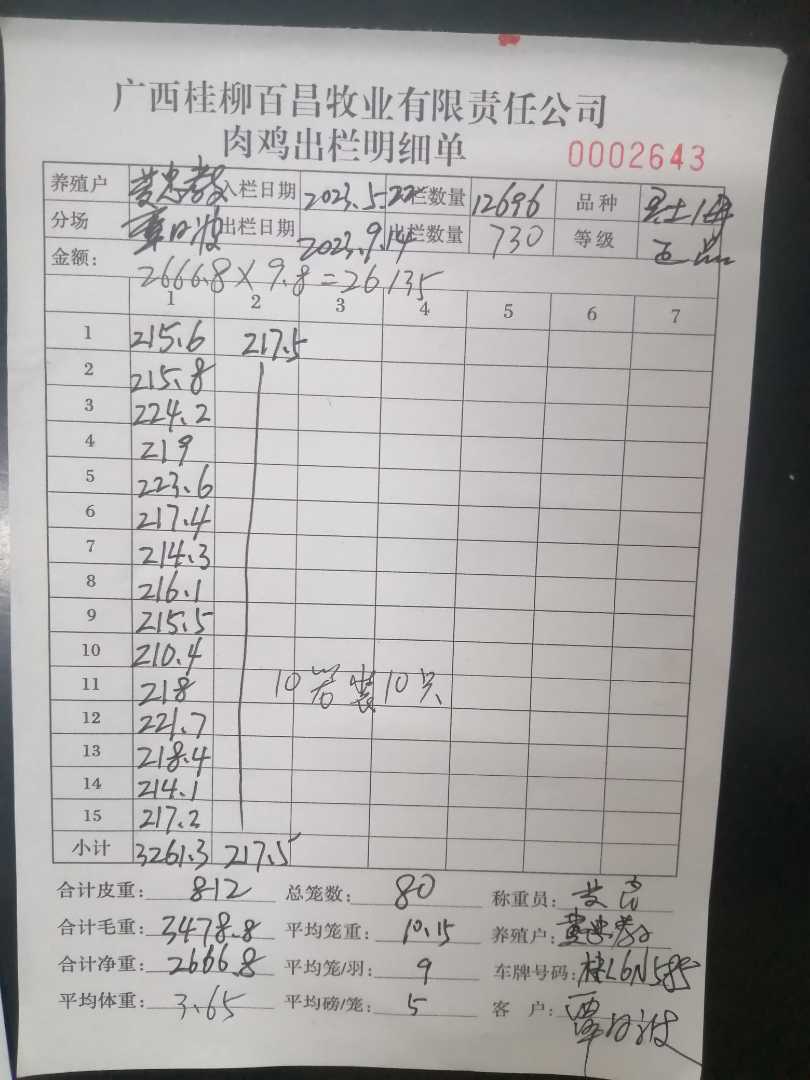 广西桂柳百昌牧业有限责任公司
肉鸡出栏明细单 0002643
养殖户 黄忠 入栏日期 2023.5.22 栏数量 12696 品种
分场 覃日波 出栏日期 2023.9.14 出栏数量 730 等级 正品
金额: 2666.8×9.8=26135
1 2 3 4 5 6 7
1 215.6 217.5
2 215.8
3 224.2
4 219
5 223.6
6 217.4
7 214.3
8 216.1
9 215.5
10 210.4
11 218 10 装10只
12 221.7
13 218.4
14 214.1
15 217.2
小计 3261.3 217.5
合计皮重: 812 总笼数: 80 称重员:
合计毛重: 3478.8 平均笼重: 10.15 养殖户: 黄忠
合计净重: 2666.8 平均笼/羽: 9 车牌号码: 桂L6N585
平均体重: 3.65 平均磅/笼: 5 客 户: 覃日波